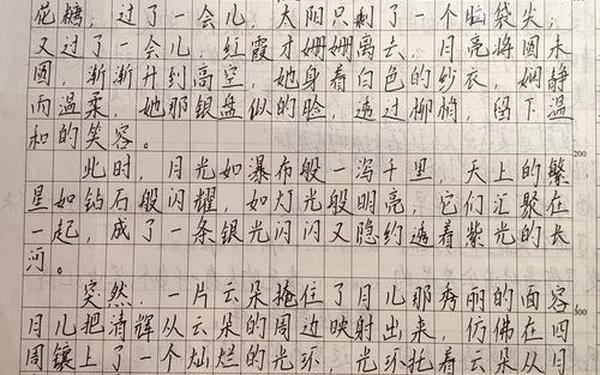 花糖，过了一会儿，太阳只剩了一个脑袋尖，
又过了一会儿，红霞才姗姗离去，月亮将圆未
圆，渐渐升到高空，她身着白色的纱衣，娴静
而温柔，她那银盘似的脸，透过柳梢，留下温
和的笑容。
200
此时，月光如瀑布般一泻千里，天上的繁
星如钻石般闪耀，如灯光般明亮，它们汇聚在
一起，成了一条银光闪闪又隐约透着紫光的长
河。
突然，一片云朵掩住了月儿那秀丽的面容
300
月儿把清辉从云朵的周边映射出来，仿佛在四
周镶上了一个灿烂的光环，光环托着云朵从月